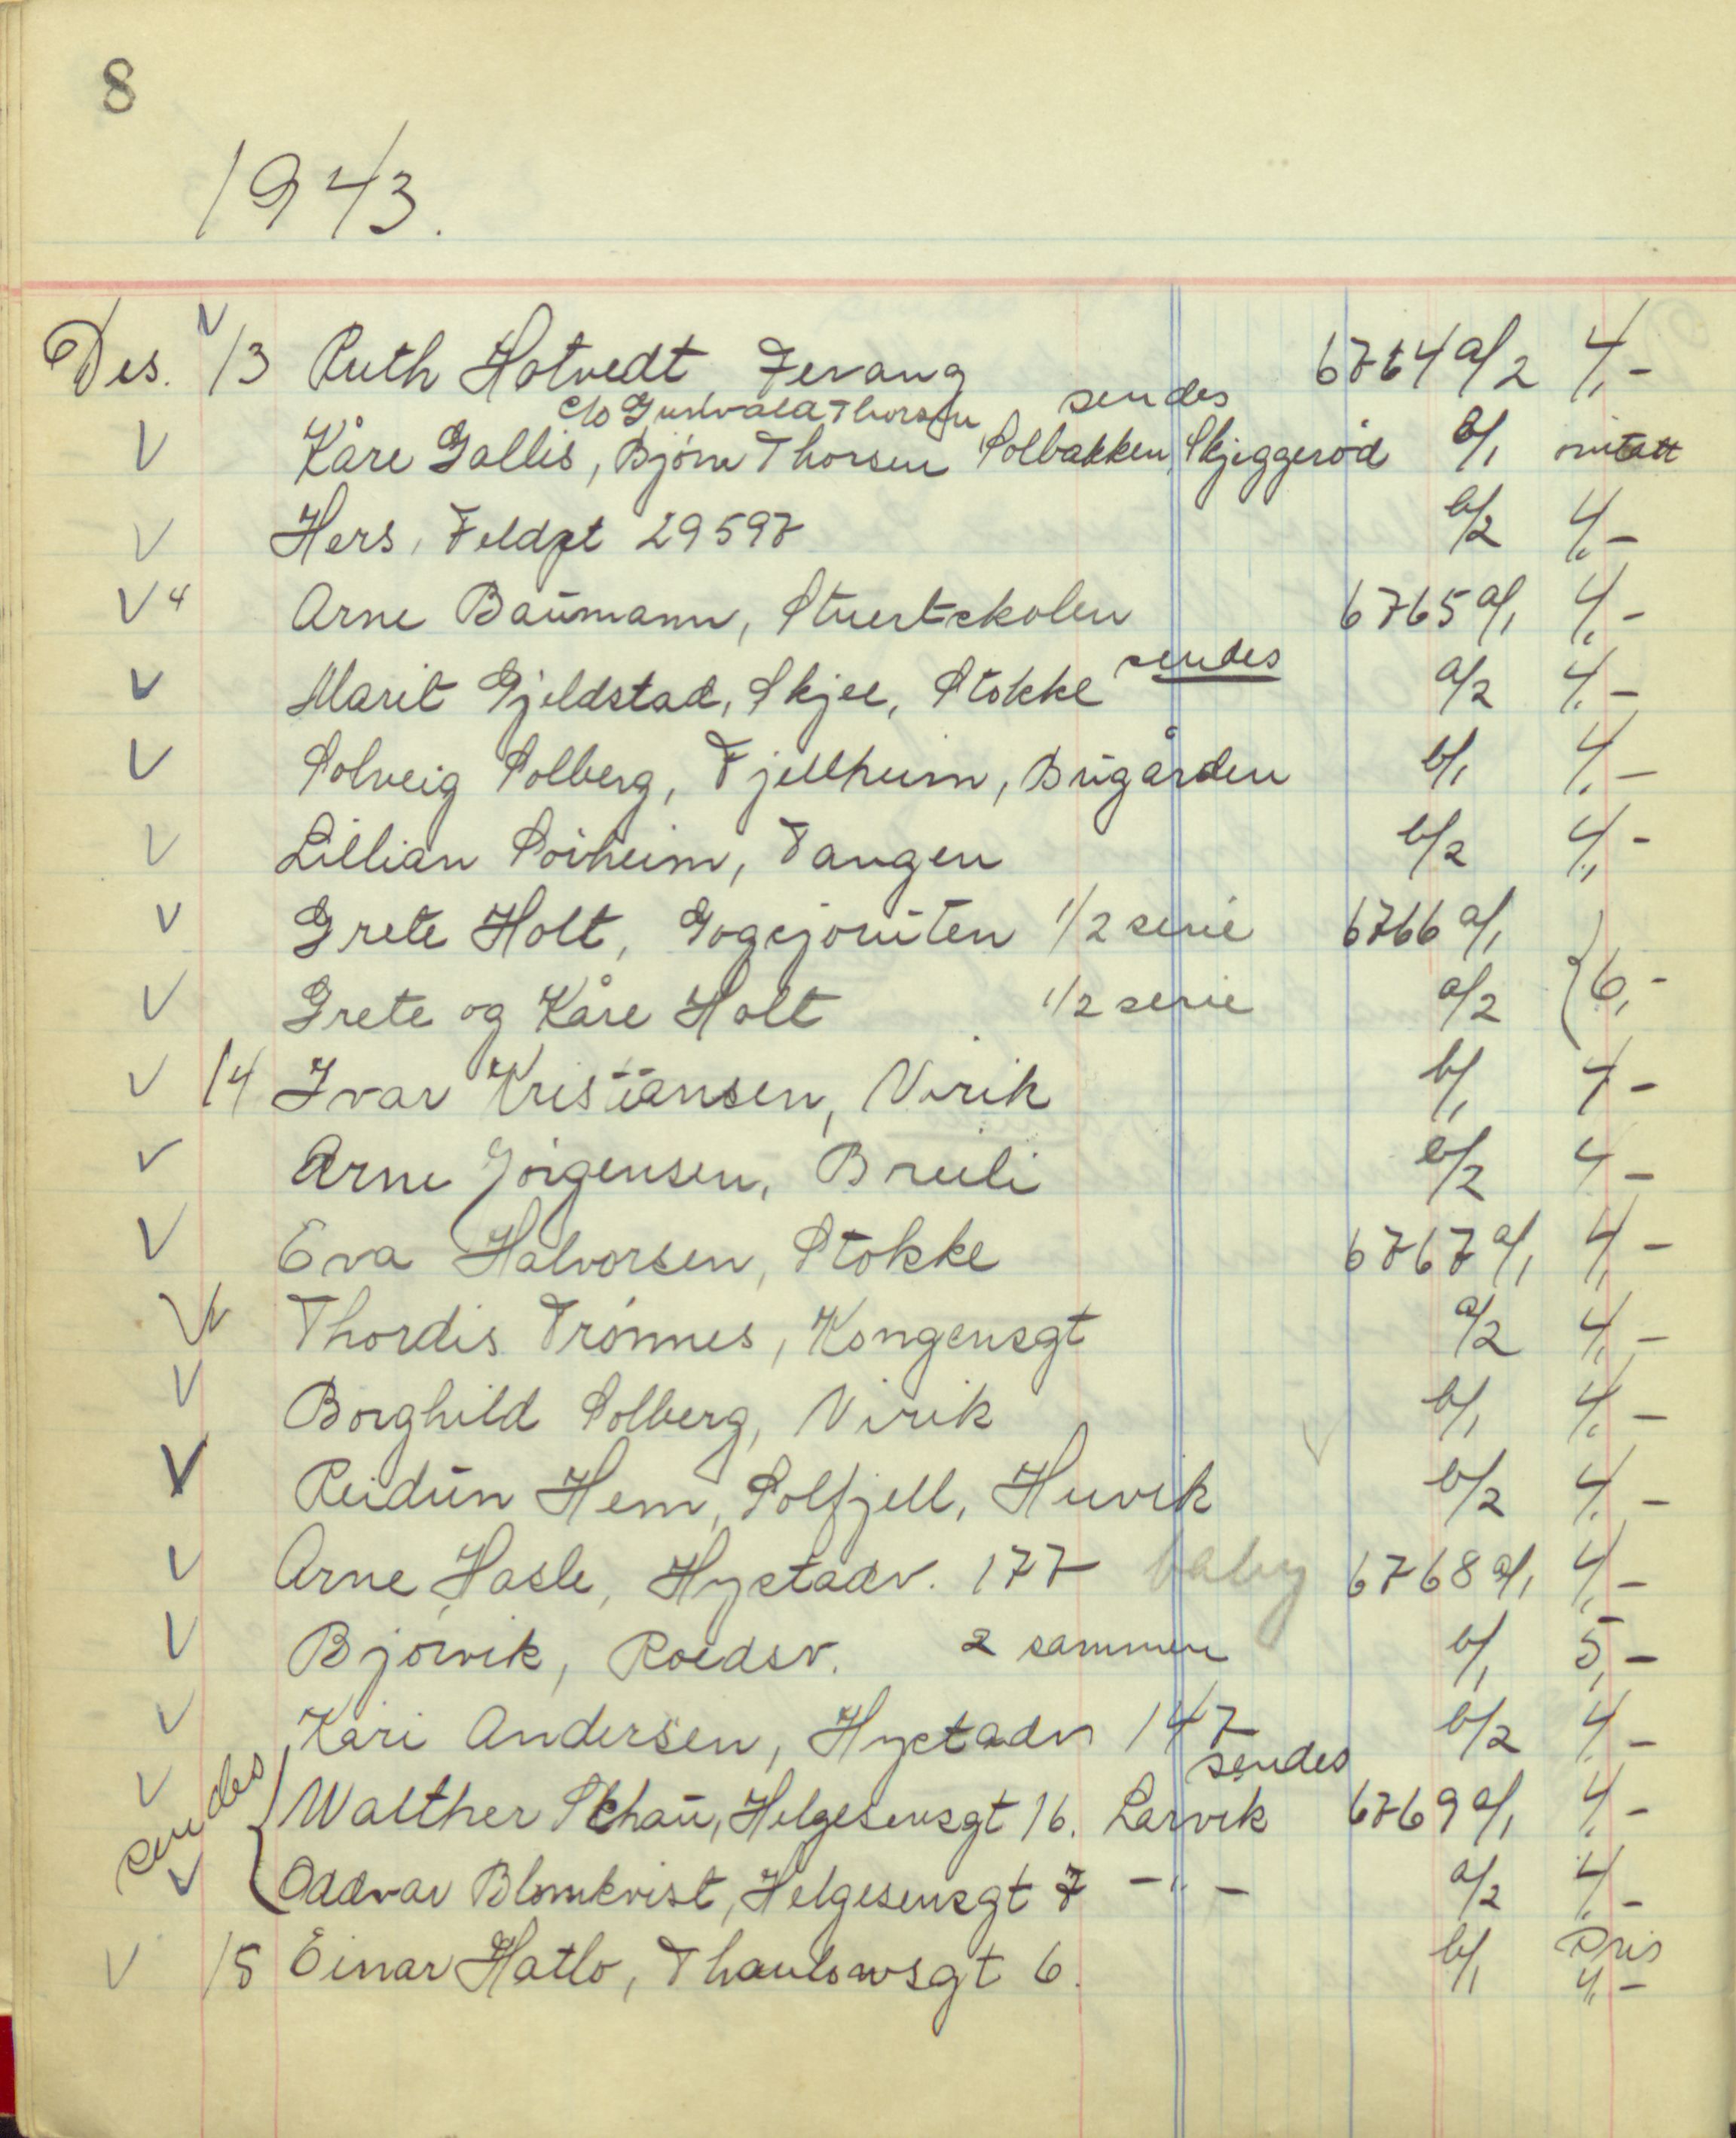 8
1943.
Des. 1/3 Ruth Hotvedt, Fevang 6764 a/2 4,-
c/o Gunvald Thorsen sendes
Kåre Gallis, Bjørn Thorsen Solbakken, Skjeggerød b/1 omtatt
Hers, Feldpt 29597 b/2 4,-
4 Arne Baumann, Stuertskolen 6765 a/1 4,-
Marit Gjeldstad, Skjee, Stokke sendes a/2 4,-
Solveig Solberg, Fjellheim, Bugården b/1 4,-
Lillian Sørheim, Tangen b/2 4,-
Grete Holt, Gogsjøruten 1/2 serie 6766 a/1
Grete og Kåre Holt 1/2 serie a/2 6,-
14 Ivar Kristiansen, Virik b/1 4-
Arne Jørgensen, Breili b/2 4-
Eva Halvorsen, Stokke 6767 a/1 4,-
Thordis Trønnes, Kongensgt a/2 4,-
Borghild Solberg, Virik b/1 4,-
Reidun Hem, Solfjell, Huvik b/2 4,-
Arne Hasle, Hystadv. 177 baby 6768 a/1 4,-
Bjørvik, Roedsv. 2 sammen b/1 5,-
Kari Andersen, Hystadv 147 b/2 4,-
sendes
sendes Walther Schau, Helgesensgt 16. Larvik 6769 a/1 4,-
Oddvar Blomkvist, Helgesensgt 7 -"- a/2 4,-
15 Einar Hatlo, Thaulowsgt 6. b/1 Pris
4,-